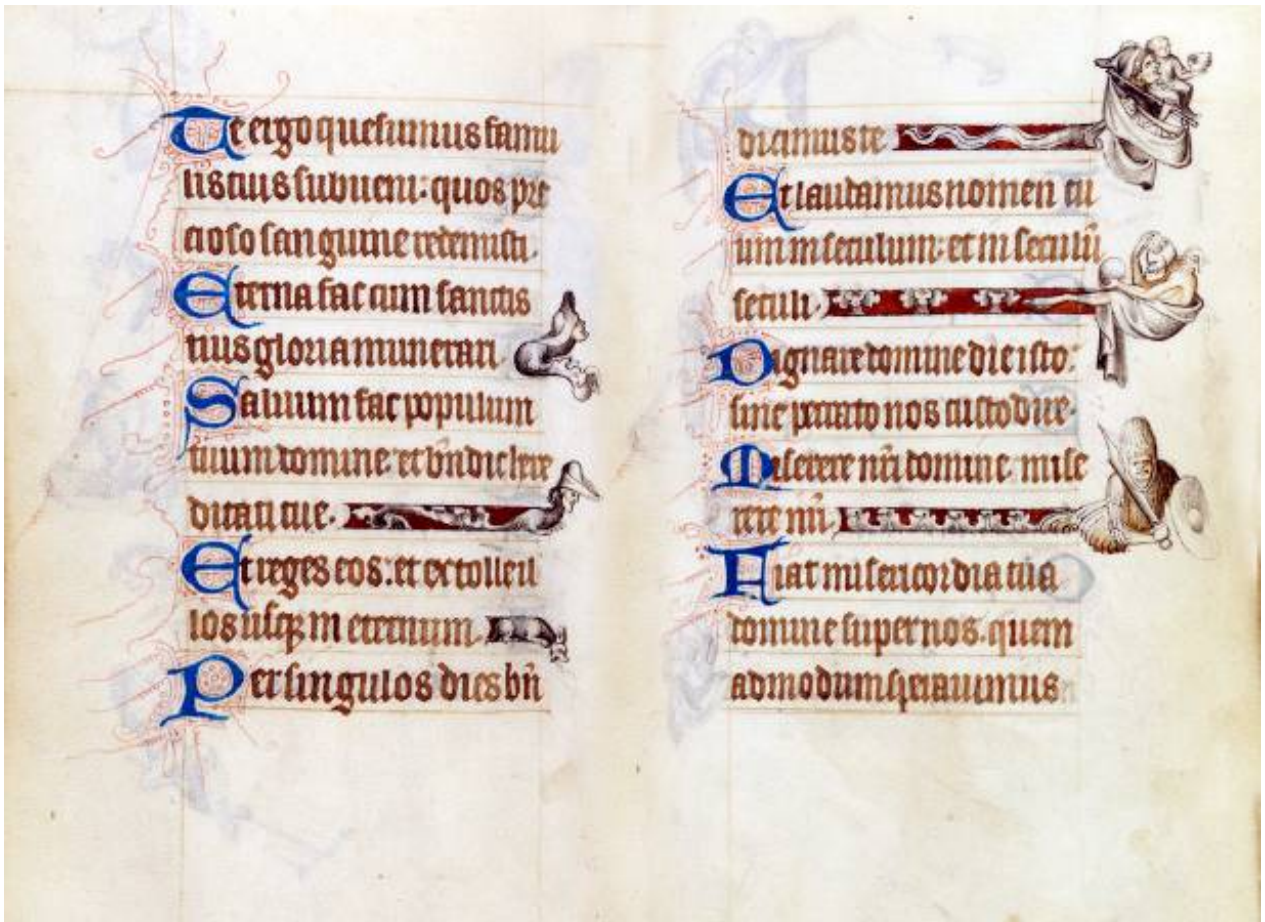 Te ergo quesumus famu
lis tuis subueni: quos pre
cioso sanguine redemisti.
Eterna fac cum sanctis
tuis gloria munerari.
Saluum fac populum
tuum domine: et bñdic here
ditati tue.
Et rege eos: et extolle il
los usqꝫ in eternum.
Per singulos dies bñ
dicimus te
Et laudamus nomen tu
um in seculum: et in seculū
seculi.
Dignare domine die isto:
sine peccato nos custodire.
Miserere nr̄i domine: mise
rere nr̄i.
Fiat misericordia tua
domine super nos. quem
admodum sperauimus